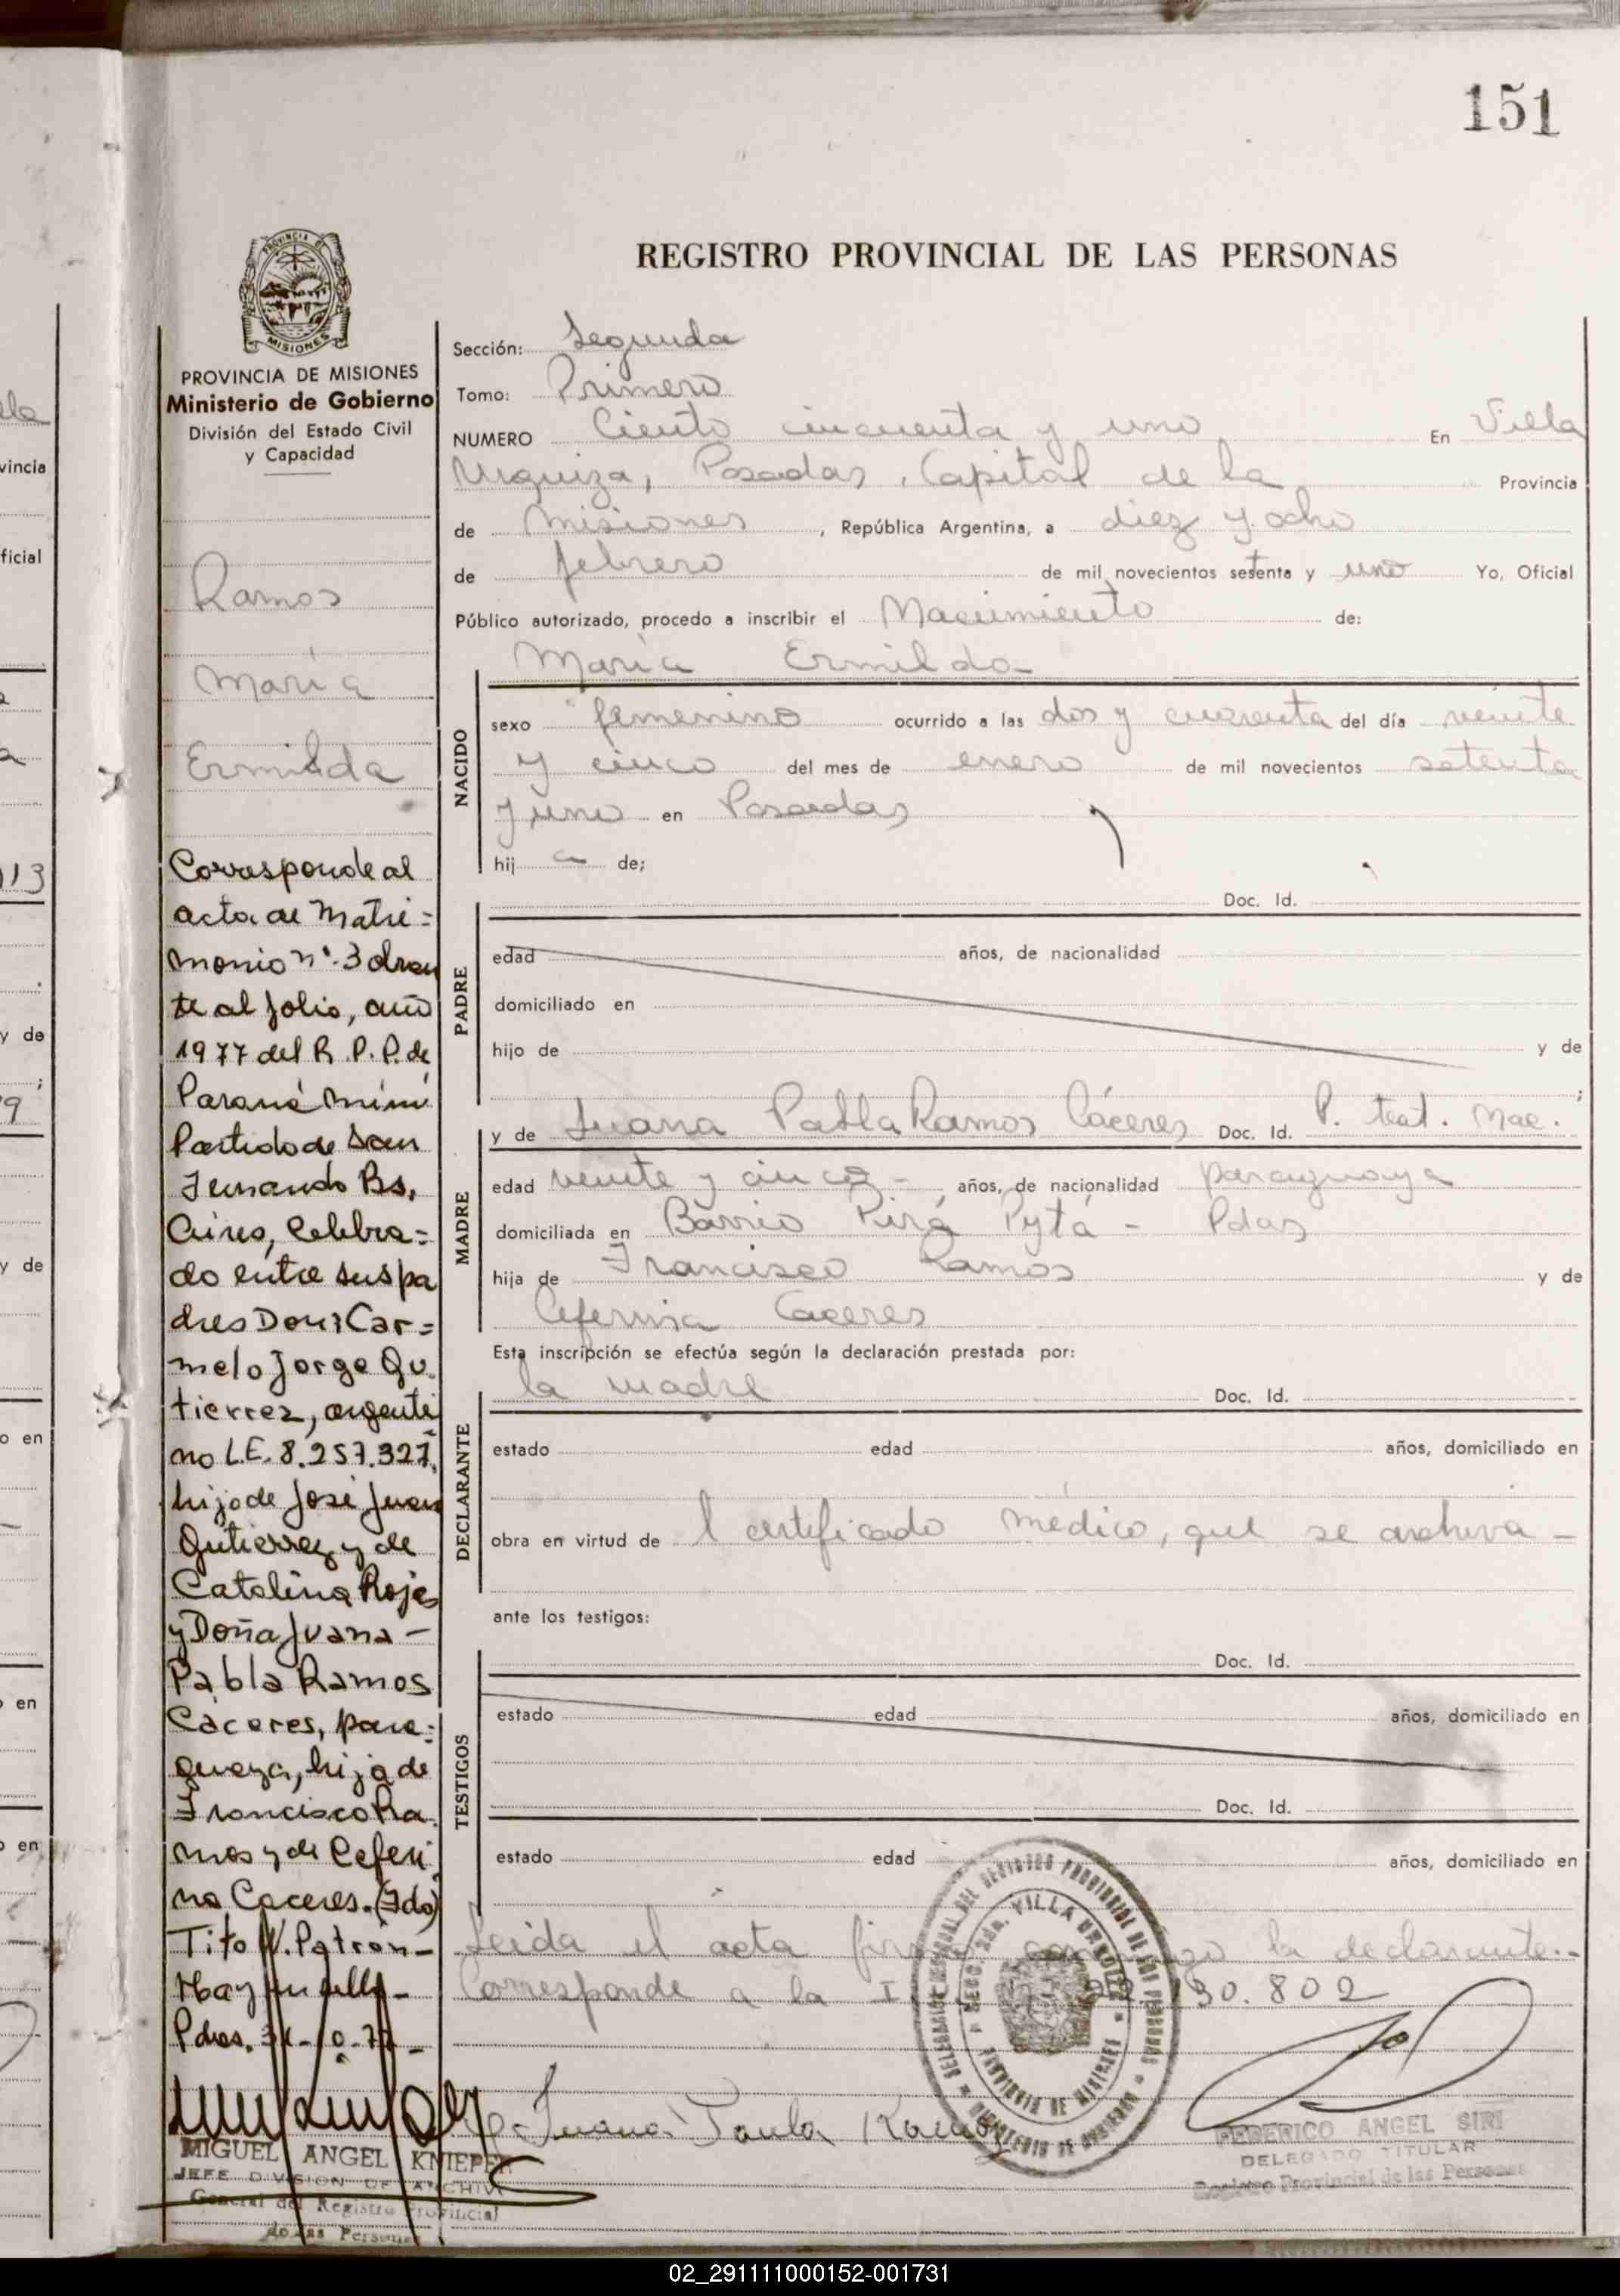 151
REGISTRO PROVINCIAL DE LAS PERSONAS
PROVINCIA DE
MISIONES
PROVINCIA DE MISIONES
Ministerio de Gobierno
División del Estado Civil
y Capacidad
Ramos
María
Ermilda
Corresponde al
acta de Matri=
monio nº. 3 obran
te al folio, año
1977 del R.P.P. de
Paraná Miní
Partido de San
Fernando Bs,
Aires, Celebra=
do entre sus pa
dres Don: Car=
melo Jorge Gu
tierrez, argenti
no L.E. 8.257.327,
hijo de José Juan
Gutierrez y de
Catalina Rojas
y Doña Juana -
Pabla Ramos
Caceres, para=
guaya, hija de
Francisco Ra
mos y de Ceferi
na Caceres. (Fdo)
Tito V. Patron -
Hay un sello -
Pdas.
MIGUEL ANGEL KNIEPER
JEFE DIVISION DE ARCHIVO
General del Registro Provincial
de las Personas
Sección: Segunda
Tomo: Primero
NUMERO Ciento cincuenta y uno En Villa
Urquiza, Posadas, Capital de la Provincia
de Misiones, República Argentina, a diez y ocho
de febrero de mil novecientos setenta y uno Yo, Oficial
Público autorizado, procedo a inscribir el Nacimiento de:
María Ermilda
NACIDO
sexo femenino ocurrido a las dos y cuarenta del día veinte
y cinco del mes de enero de mil novecientos setenta
y uno en Posadas
hij a de;
Doc. Id.
PADRE
edad años, de nacionalidad
domiciliado en
hijo de y de
;
MADRE
y de Juana Pabla Ramos Cáceres Doc. Id. P. teat. Nac.
edad veinte y cinco - años, de nacionalidad paraguaya
domiciliada en Barrio Pirá Pytá - Pdas
hija de Francisco Ramos y de
Ceferina Caceres
Esta inscripción se efectúa según la declaración prestada por:
la madre Doc. Id.
DECLARANTE
estado edad años, domiciliado en
obra en virtud de l certificado médico, que se archiva -
ante los testigos:
Doc. Id.
TESTIGOS
estado edad años, domiciliado en
Doc. Id.
estado edad años, domiciliado en
Leida el acta la declarante.-
Corresponde a la 30.802
Juana Paula Ramos
VILLA URQUIZA
PROVINCIA DE MISIONES
FEDERICO ANGEL SIRI
DELEGADO TITULAR
Registro Provincial de las Personas
02_291111000152-001731